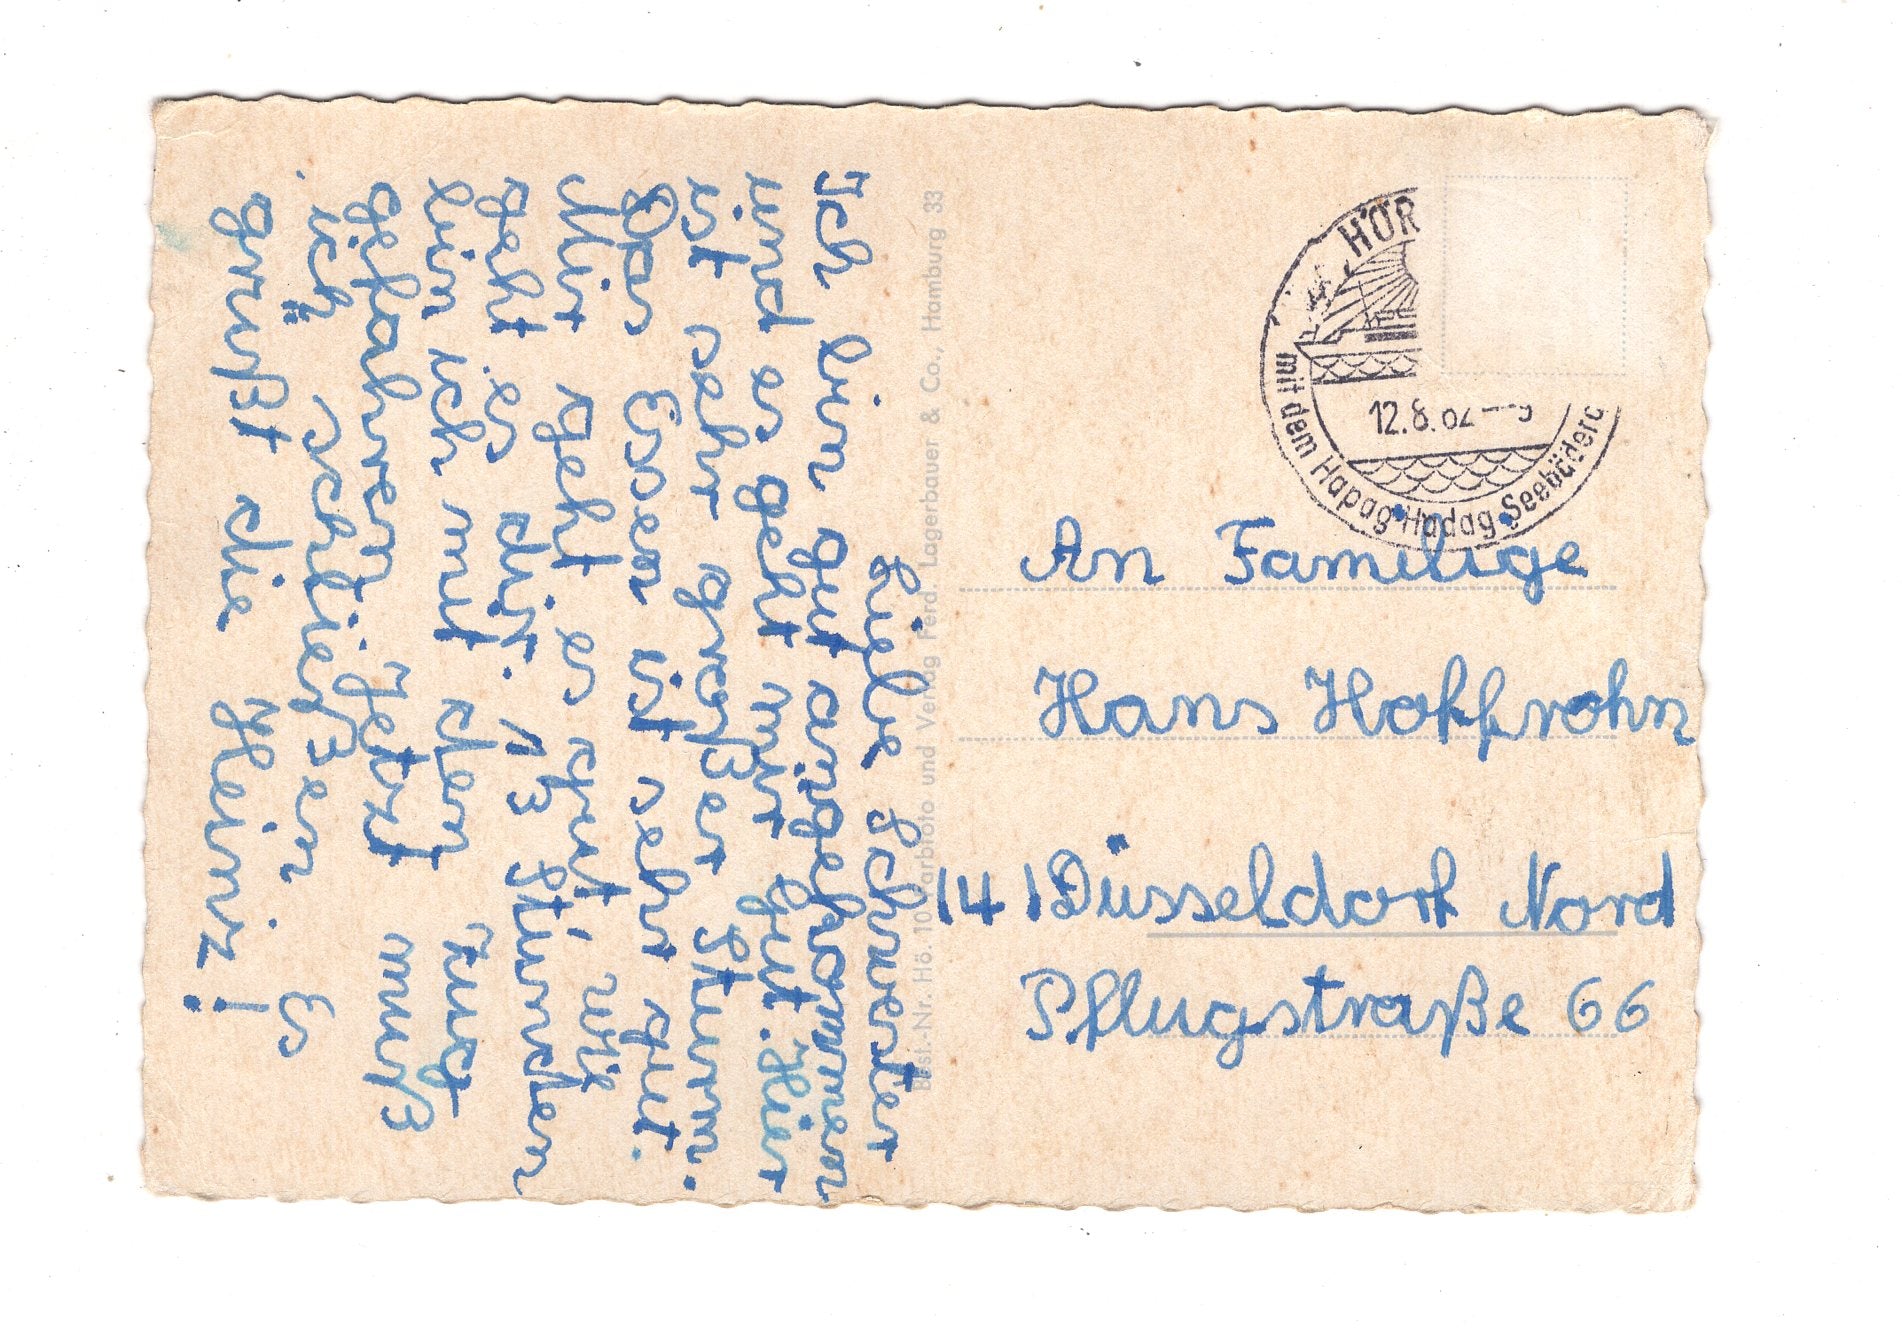 Liebe Schwester
Ich bin gut angekommen
und es geht mir gut. Hier
ist sehr großer Sturm.
Das Essen ist sehr gut.
Mir geht es gut, wie
geht es dir? 13 Stunden
bin ich mit den Zug
gefahren. Jetzt muß
ich schließen. Es
grüßt die Heinz!
Best.-Nr. Hö. 10 Farbfoto und Verlag Ferd. Lagerbauer & Co., Hamburg 33
HÖR
12.8.62
mit dem Hapag-Hadag-Seebäderd
An Familige
Hans Hoffrohn
141 Düsseldorf Nord
Pflugstraße 66